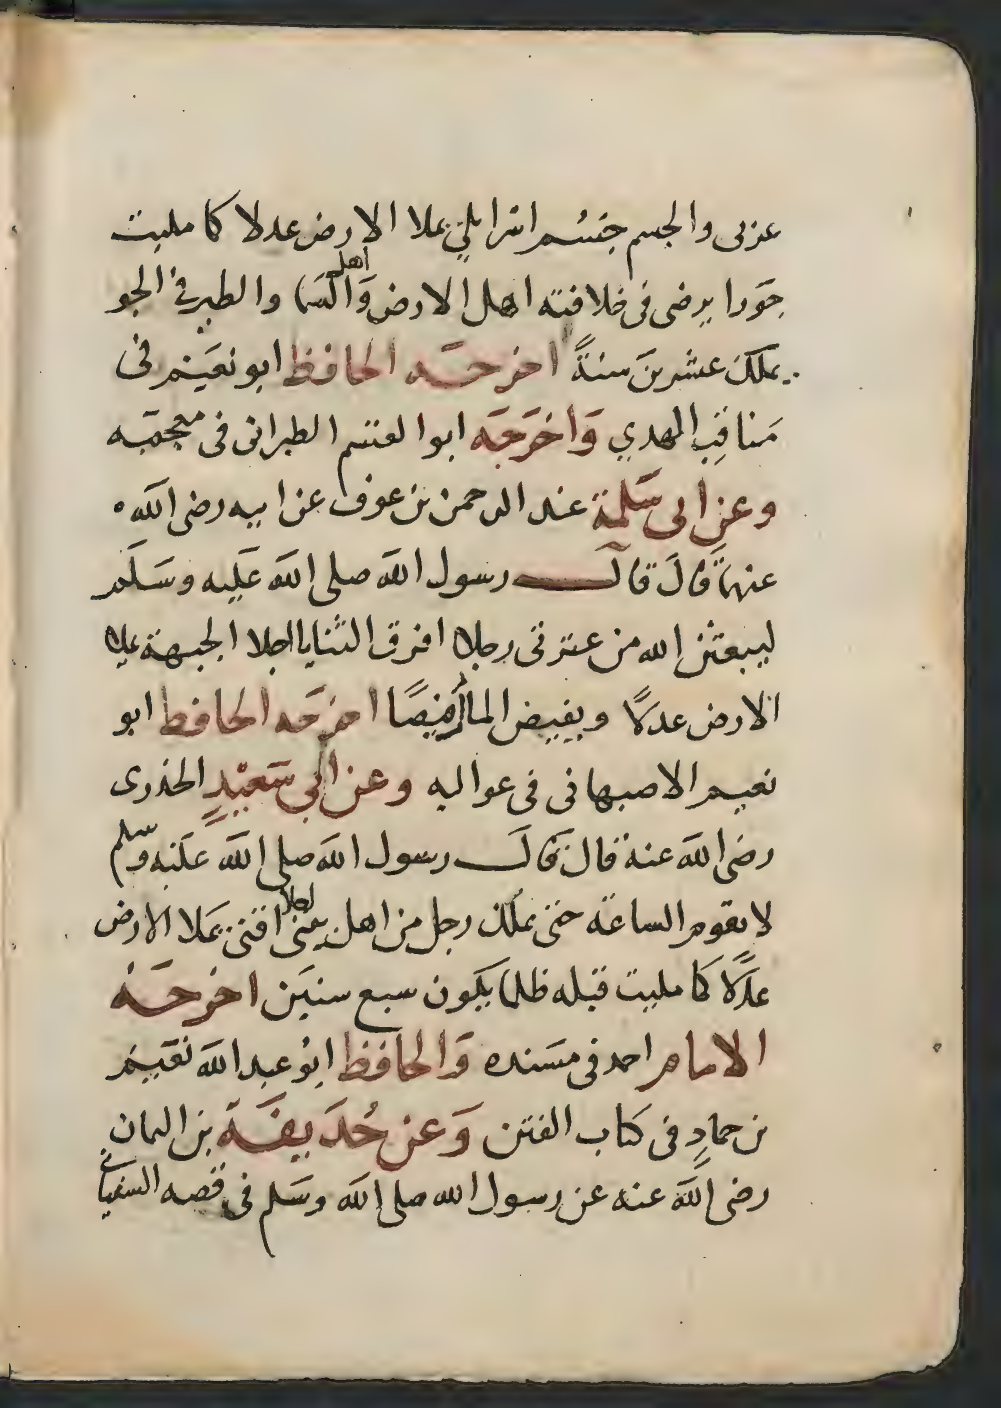 عربى والجسم جسم اسرايلي يملا الارض عدلا كما مليت
جورا يرضى فى خلافته اهل الارض واهل السما والطير في الجو
يملك عشرين سنة اخرجه الحافظ ابو نعيم فى
مناقب المهدي واخرجه ابوا لقسم الطبرانى فى معجمه
وعن ابى سلمة عبد الرحمن بن عوف عن ابيه رضى الله
عنهما قال قال رسول الله صلى الله عليه وسلم
ليبعثن الله من عترتى رجلا افرق الثنايا اجلا الجبهة يملا
الارض عدلا ويفيض المال فيضا اخرجه الحافظ ابو
نعيم الاصبهانى فى عواليه وعن ابي سعيد الخدرى
رضى الله عنه قال قال رسول الله صلى الله عليه وسلم
لا تقوم الساعة حتى يملك رجل من اهل بيتى اجلا اقنى يملا الارض
عدلا كما مليت قبله ظلما يكون سبع سنين اخرجه
الامام احمد فى مسنده والحافظ ابو عبد الله نعيم
بن حماد فى كتاب الفتن وعن حذيفة بن اليمان
رضى الله عنه عن رسول الله صلى الله وسلم فى قصه السفيانى